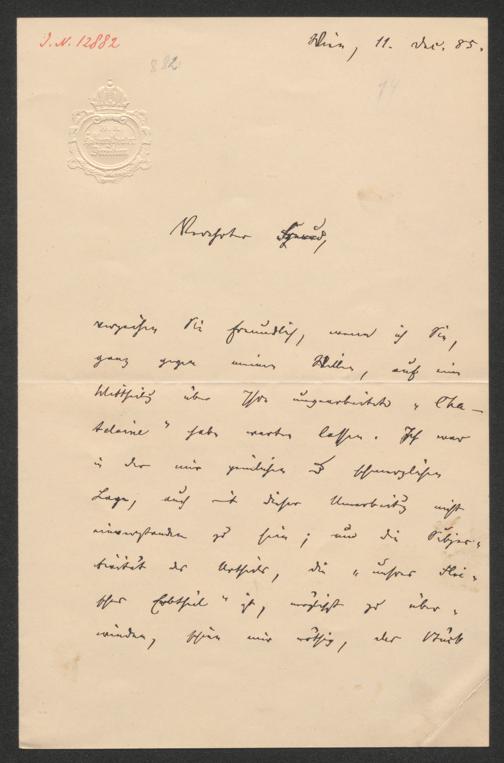 I. N. 12882
882
Wien, 11. Dec. 85.
74
Verehrter Freund,
verzeihen Sie freundlich, wenn ich Sie,
ganz gegen meinen Willen, auf eine
Mittheilg über Ihre umgearbeitete „Cha-
telaine“ habe warten lassen. Ich war
in der mir peinlichen u schmerzlichen
Lage, auch mit dieser Umarbeitg nicht
einverstanden zu sein; und die Subjec-
tivität des Urtheils, die „unsres Flei-
sches Erbtheil“ ist, möglichst zu über-
winden, schien mir nöthig, das Stück